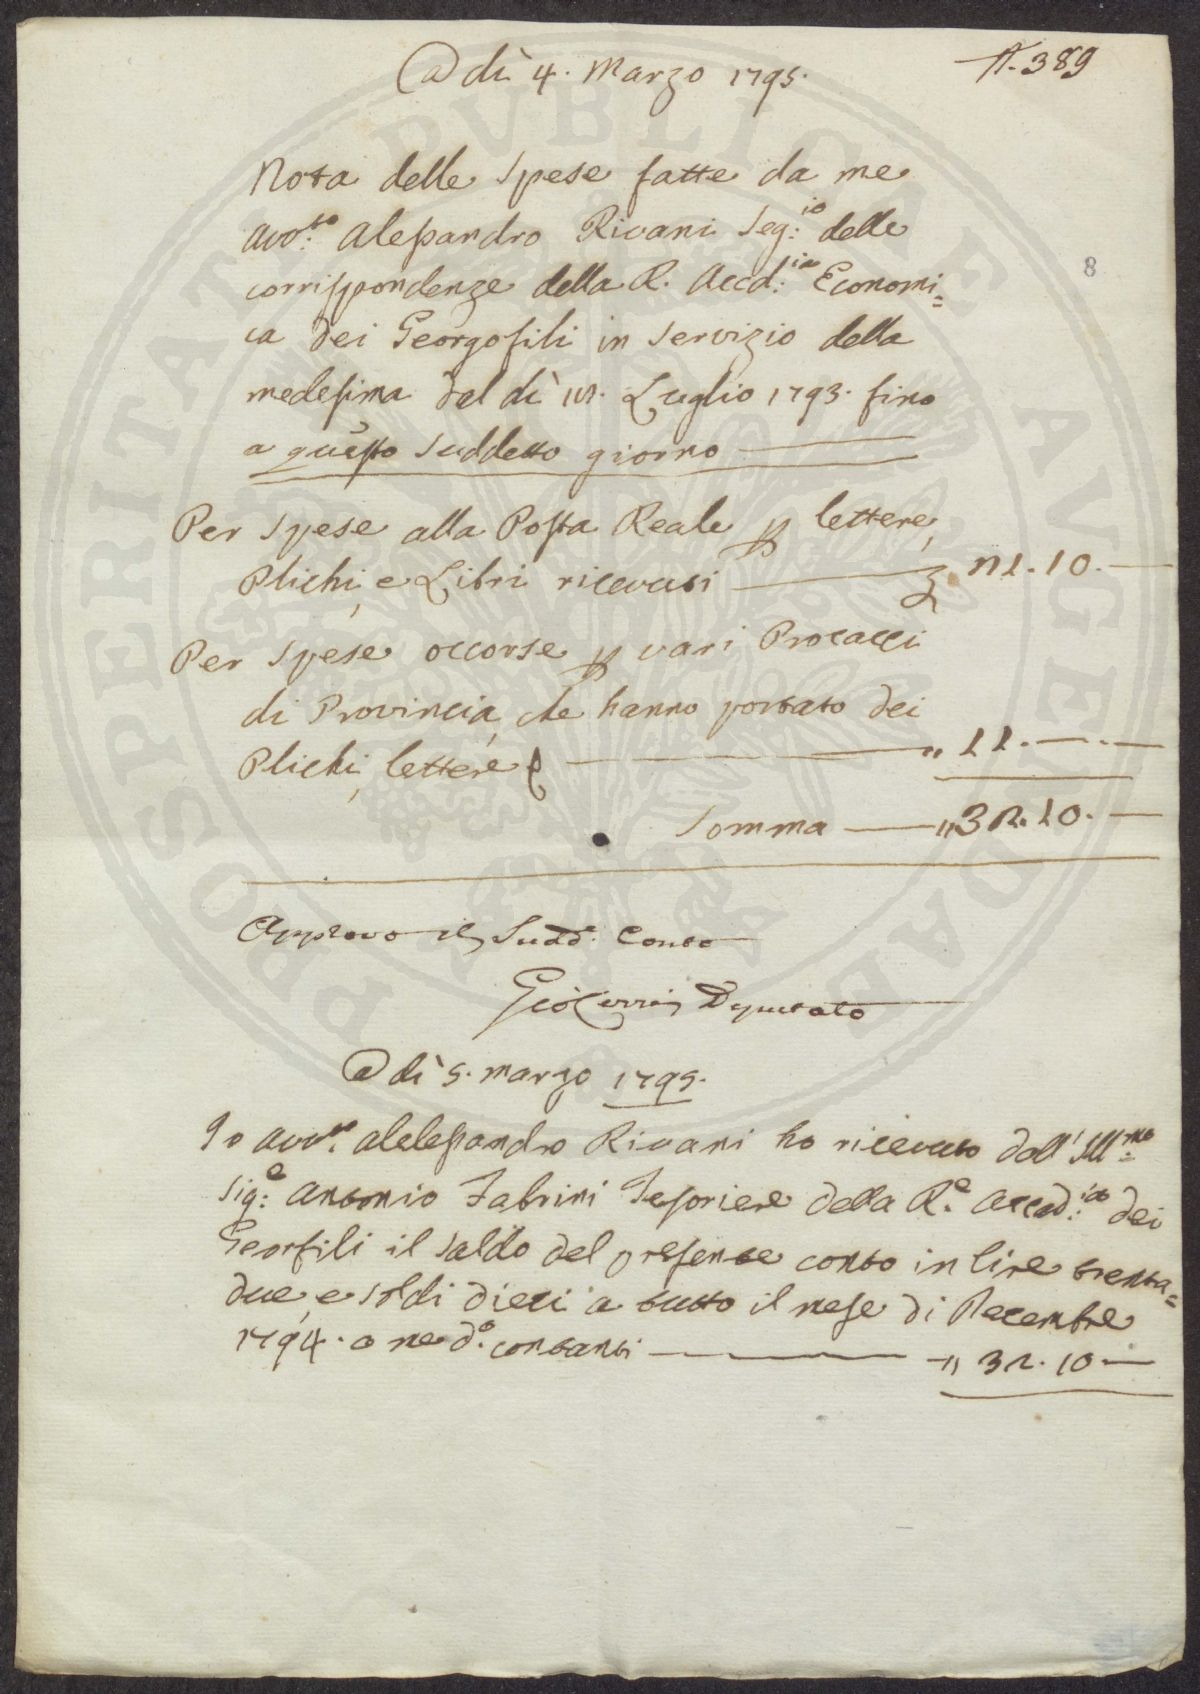 A dì 4. Marzo 1795.
N. 389
Nota delle Spese fatte da me
Avv.to Alessandro Rivani Seg:io delle
8
corrispondenze della R. Accd:ia Economi=
ca dei Georgofili in servizio della
medesima dal dì Luglio 1793. fino
a questo suddetto giorno
Per spese alla Posta Reale p lettere,
Plichi, e Libri ricevuti 21. 10. —
Per spese occorse p vari Procacci
di Provincia, che hanno portato dei
Plichi, lettere " 11. — . —
Somma — " 32. 10. —
Approvo il Sudd.o Conto
Gio: Deputato
A dì 5. marzo 1795.
Io avv.to Alelessandro Rivani ho ricevuto dall'Ill:mo
Sig:e Antonio Fabrini Tesoriere della R.e Accad:ia dei
Georfili il saldo del presente conto in lire trenta=
due, e soldi dieci a tutto il mese di Decembre
1794. a me d.o contanti — " 32. 10 —
PROSPERITATI PVBLICAE AVGENDAE